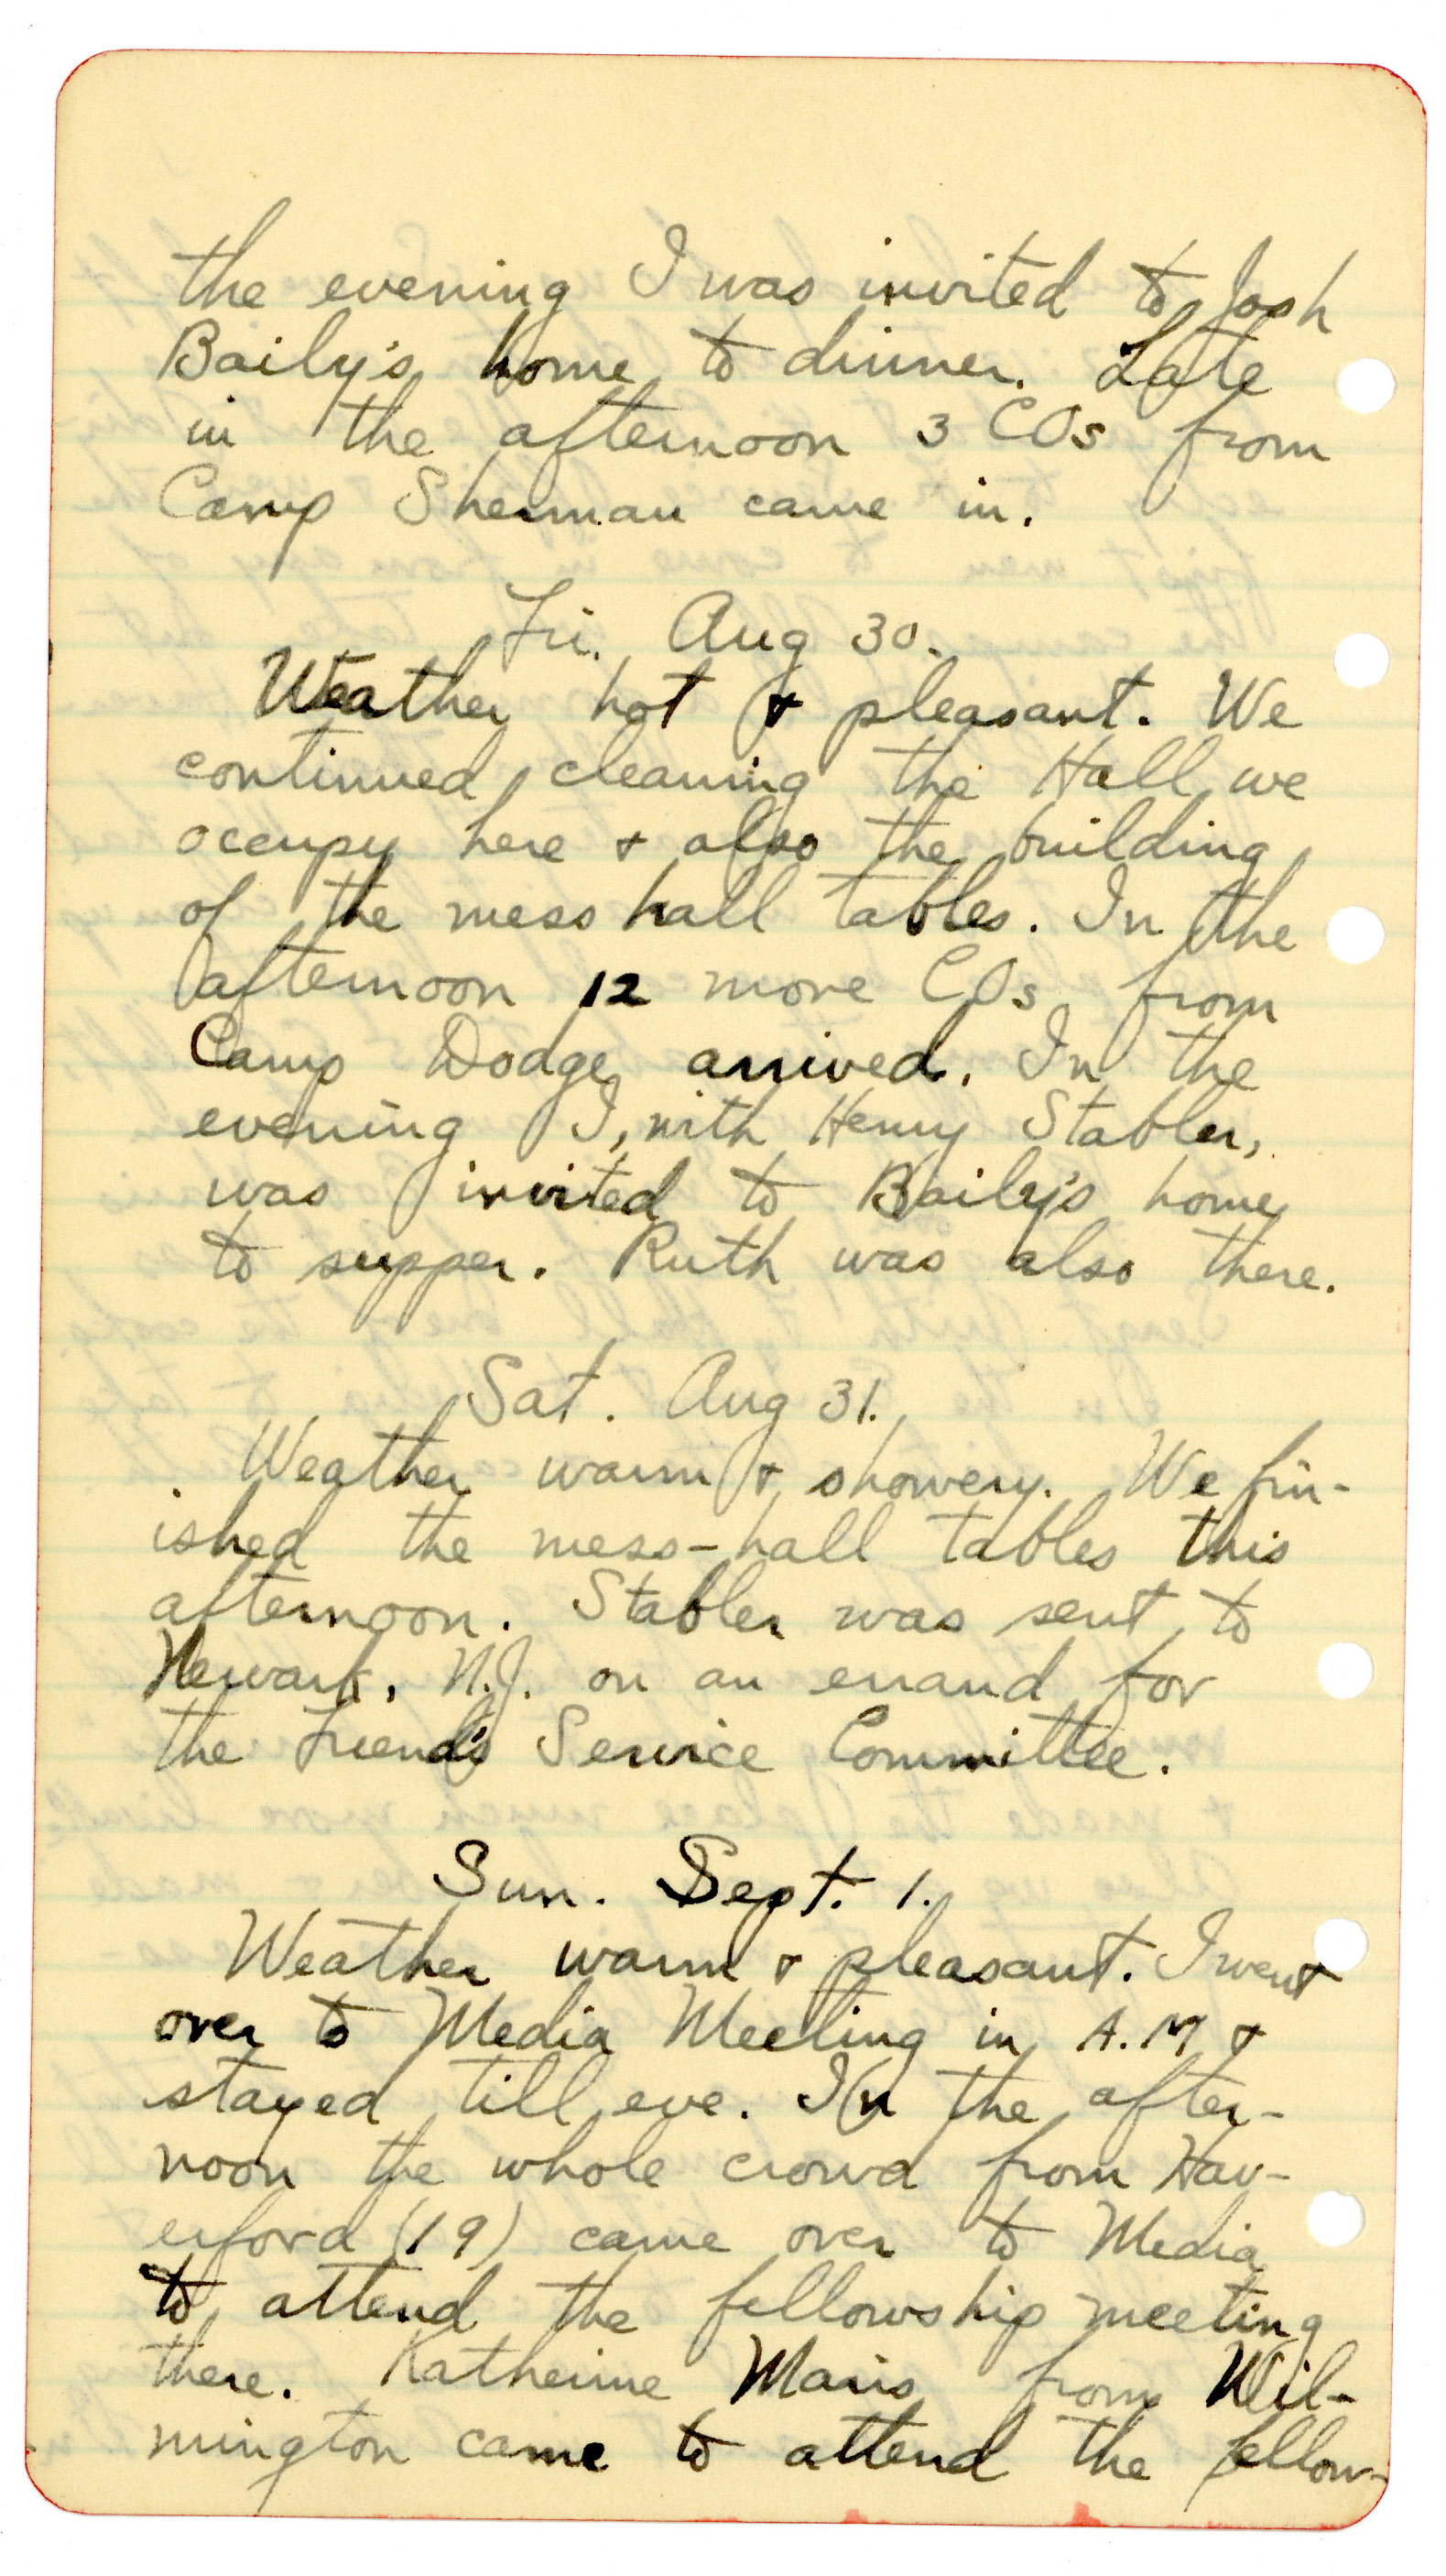 the evening I was invited to Josh
Baily's home to dinner. Late
in the afternoon 3 COs from
Camp Sherman came in.
Fri. Aug 30.
Weather hot & pleasant. We
continued cleaning the Hall we
occupy here & also the building
of the mess hall tables. In the
afternoon 12 more COs from
Camp Dodge arrived. In the
evening I, with Henry Stabler,
was invited to Baily's home
to supper. Ruth was also there.
Sat. Aug 31.
Weather warm & showery. We fin-
ished the mess-hall tables this
afternoon. Stabler was sent to
Newark, N.J. on an errand for
the Friends Service Committee.
Sun. Sept. 1.
Weather warm & pleasant. I went
over to Media Meeting in A.M &
stayed till eve. In the after-
noon the whole crowd from Hav-
erford (19) came over to Media
to attend the fellowship meeting
there. Katherine Maris from Wil-
mington came to attend the fellow-